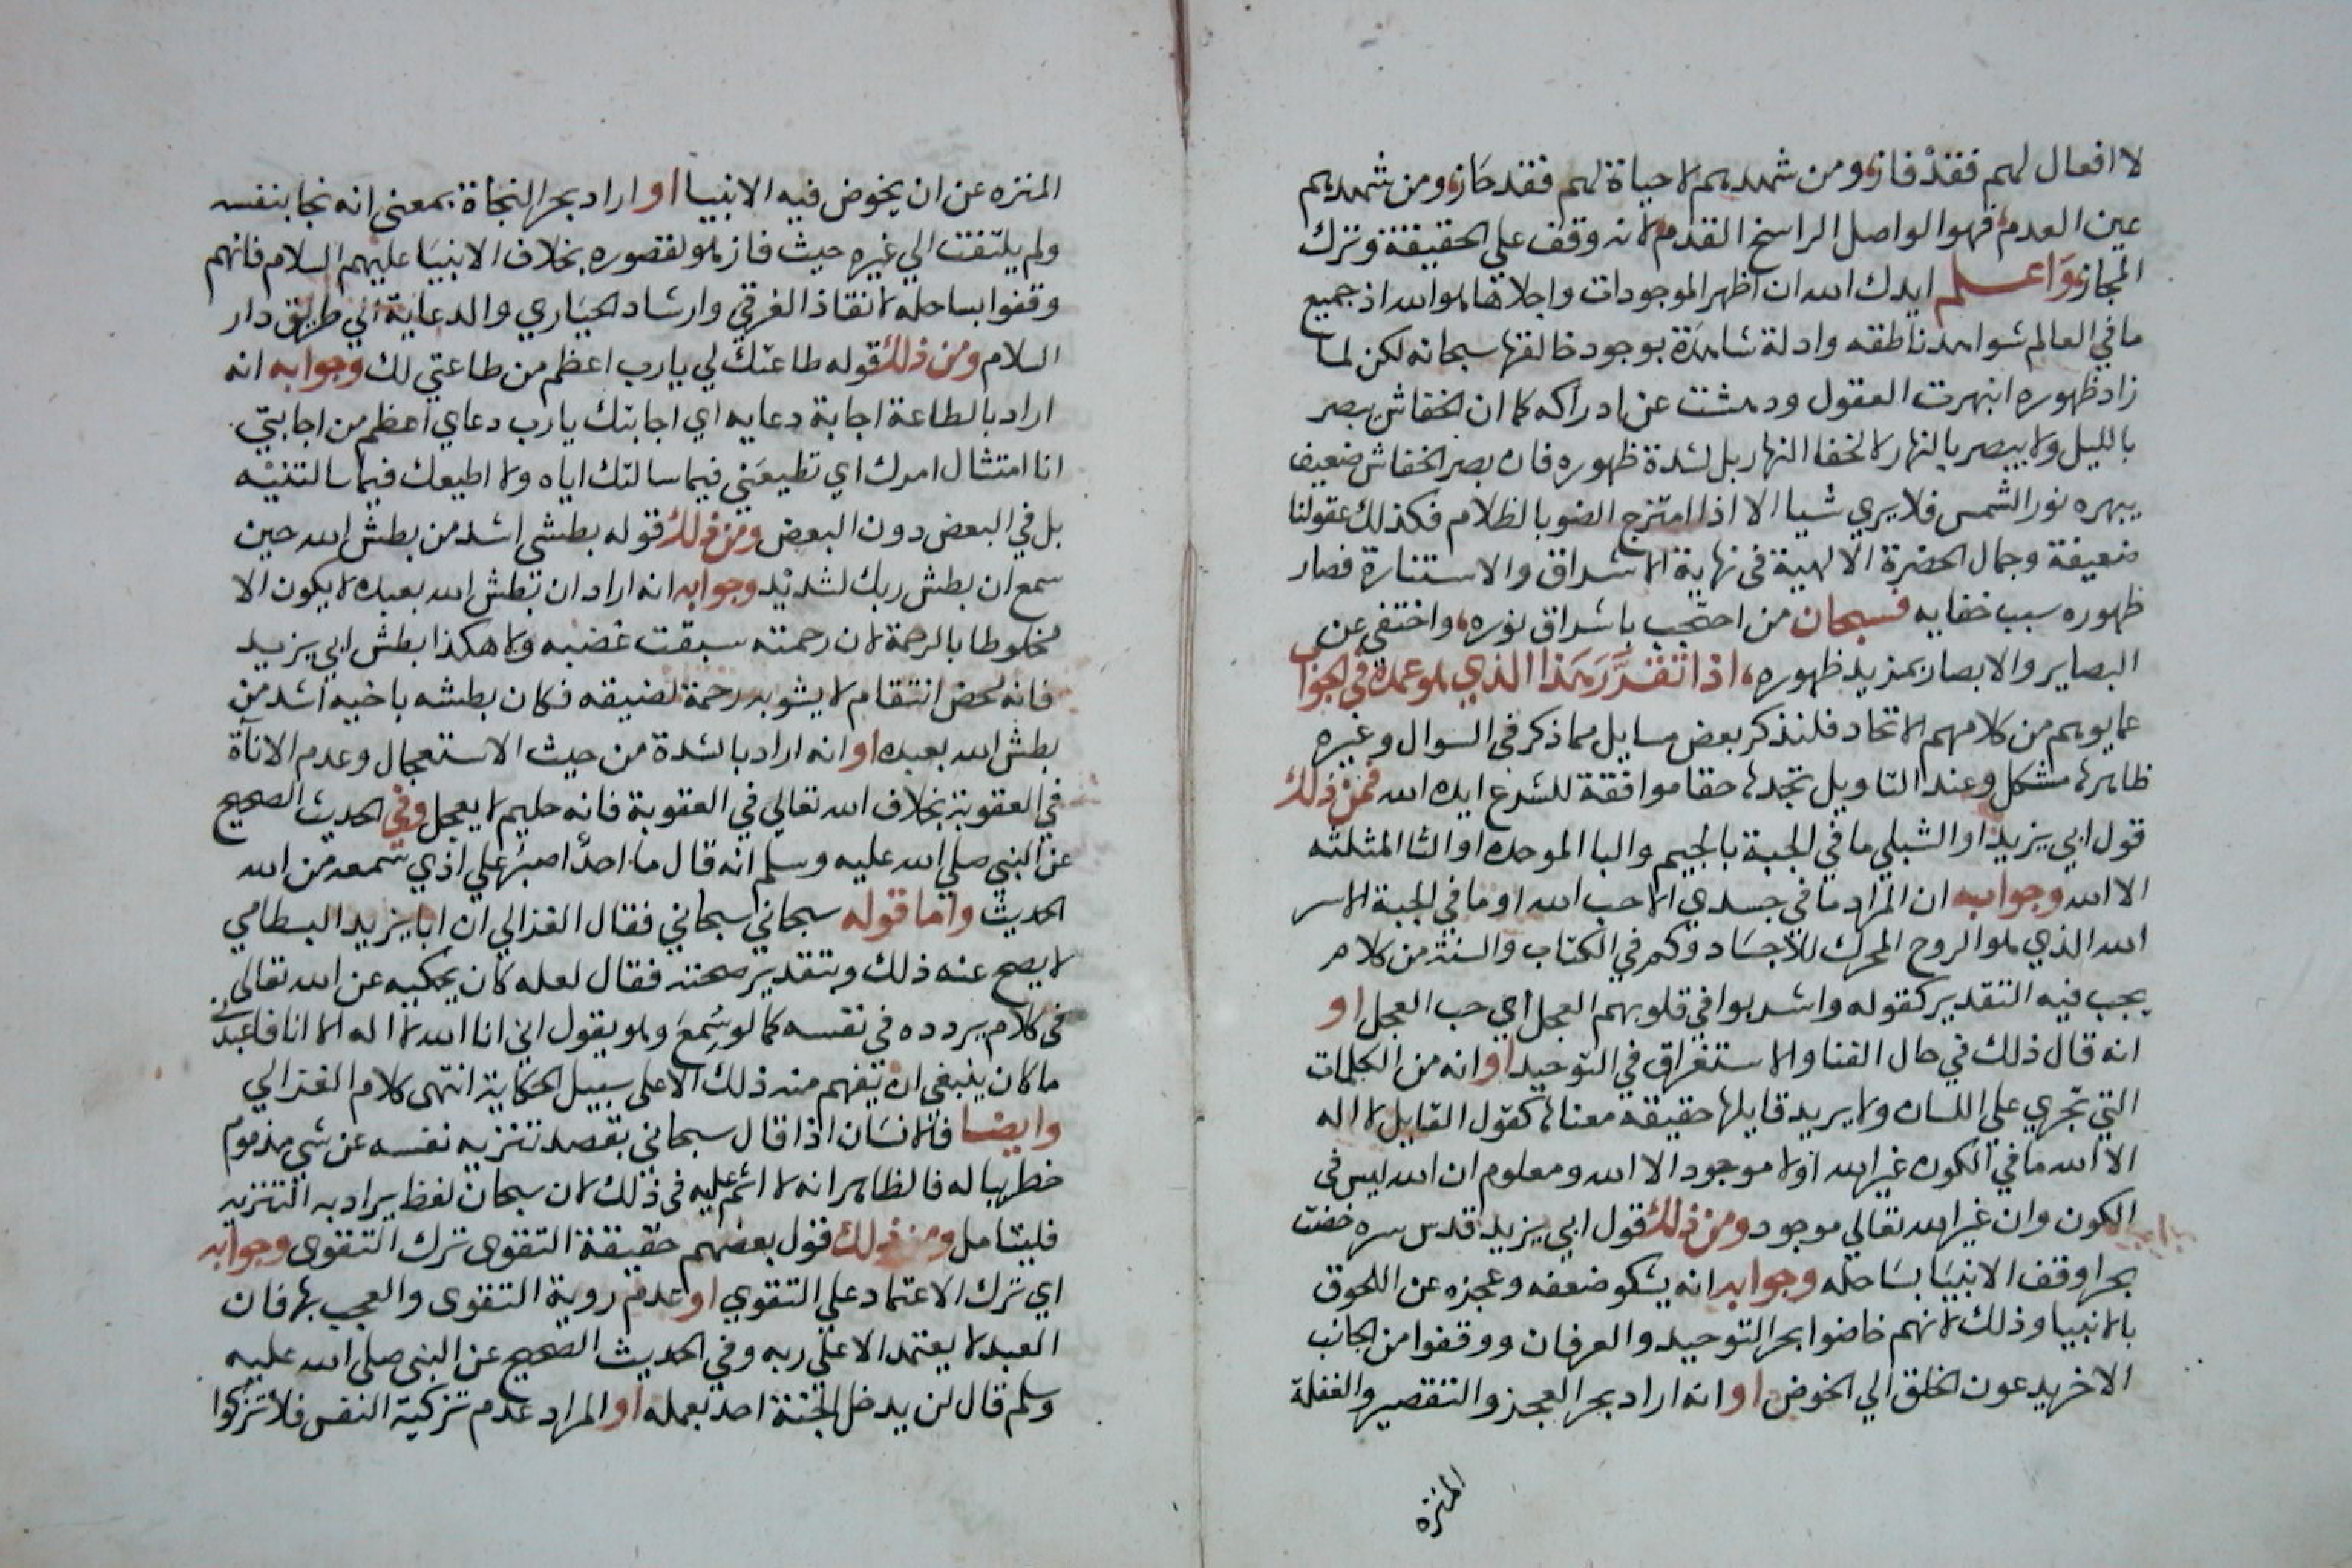 لا افعال لهم فقد فاز، ومن شهدهم لا حياة لهم فقد حاز، ومن شهدهم
عين العدم فهو الواصل الراسخ القدم لانه وقف علي الحقيقة وترك
المجاز، واعلم ايدك الله ان اظهر الموجودات واجلاها هو الله اذ جميع
ما في العالم شواهد ناطقه وادلة شاهدة بوجود خالقها سبحانه لكن لما
زاد ظهوره انبهرت العقول ودهشت عن ادراكه كما ان الخفاش يبصر
بالليل ولا يبصر بالنهار لا لخفا النهار بل لشدة ظهوره فان بصر الخفاش ضعيف
يبهره نور الشمس فلا يري شيا الا اذا امتزج الضو بالظلام فكذلك عقولنا
ضعيفة وجمال الحضرة الالهية في نهاية الاشراق والاستنارة فصار
ظهوره سبب خفايه فسبحان من احتجب باشراق نوره، واختفي عن
البصاير والابصار بمزيد ظهوره، اذا تقرر هذا الذي هو عمدة في الجواب
عما يوهم من كلامهم الاتحاد فلنذكر بعض مسايل مما ذكر في السوال وغيره
ظاهرها مشكل وعند التاويل تجدها حقا موافقة للشرع ايده الله فمن ذلك
قول ابي يزيد او الشبلي ما في الجبة بالجيم والبا الموحده او الثا المثلثه
الا الله وجوابه ان المراد ما في جسدي الا حب الله او ما في الجبة الا سر
الله الذي هو الروح المحرك للاجساد وكم في الكتاب والسنة من كلام
يجب فيه التقدير كقوله واشربوا في قلوبهم العجل اي حب العجل او
انه قال ذلك في حال الفنا والاستغراق في التوحيد او انه من الكلمات
التي تجري علي اللسان ولا يريد قايلها حقيقة معناها كقول القايل لا اله
الا الله ما في الكون غير الله او لا موجود الا الله ومعلوم ان الله ليس في
الكون وان غير الله تعالي موجود ومن ذلك قول ابي يزيد قدس سره خضت
بحرا وقف الانبيا بساحله وجوابه انه يشكو ضعفه وعجزه عن اللحوق
بالانبيا وذلك لانهم خاضوا بحر التوحيد والعرفان ووقفوا من الجانب
الاخر يدعون الخلق الي الخوض او انه اراد بحر العجز والتقصير والغفلة
المنزه
المنزه عن ان يخوض فيه الانبيا او اراد بحر النجاة بمعني انه نجا بنفسه
ولم يلتفت الي غيره حيث فاز هو لقصوره بخلاف الانبيا عليهم السلام فانهم
وقفوا بساحله لانقاذ الغرقي وارشاد الحياري والدعاية الي طريق دار
السلام ومن ذلك قوله طاعتك لي يا رب اعظم من طاعتي لك وجوابه انه
اراد بالطاعة اجابة دعايه اي اجابتك يا رب دعاي اعظم من اجابتي
انا امتثال امرك اي تطيعني فيما سالتك اياه ولا اطيعك فيما سالتنيه
بل في البعض دون البعض ومن ذلك قوله بطشي اشد من بطش الله حين
سمع ان بطش ربك لشديد وجوابه انه اراد ان بطش الله بعبده لا يكون الا
مخلوطا بالرحمة لان رحمته سبقت غضبه ولا هكذا بطش ابي يزيد
فانه محض انتقام لا يشوبه رحمة لضيقه فكان بطشه باخيه اشد من
بطش الله بعبده او انه اراد بالشدة من حيث الاستعجال وعدم الاناة
في العقوبة بخلاف الله تعالي في العقوبة فانه حليم لا يعجل وفي الحديث الصحيح
عن النبي صلي الله عليه وسلم انه قال ما احد اصبر علي اذي سمعه من الله
الحديث واما قوله سبحاني سبحاني فقال الغزالي ان ابا يزيد البسطامي
لا يصح عنه ذلك وبتقدير صحته فقال لعله كان يحكيه عن الله تعالي
في كلام يردده في نفسه كما لو سُمع وهو يقول اني انا الله لا اله الا انا فاعبدني
ما كان ينبغي ان يفهم منه ذلك الا علي سبيل الحكاية انتهي كلام الغزالي
وايضا فالانسان اذا قال سبحاني بقصد تنزيه نفسه عن شي مذموم
خطر بباله فالظاهر انه لا اثم عليه في ذلك لان سبحان لفظ يراد به التنزيه
فليتامل ومن ذلك قول بعضهم حقيقة التقوى ترك التقوى وجوابه
اي ترك الاعتماد علي التقوي او عدم روية التقوى والعجب بها فان
العبد لا يعتمد الا علي ربه وفي الحديث الصحيح عن النبي صلي الله عليه
وسلم قال لن يدخل الجنة احد بعمله او المراد عدم تزكية النفس فلا تزكوا